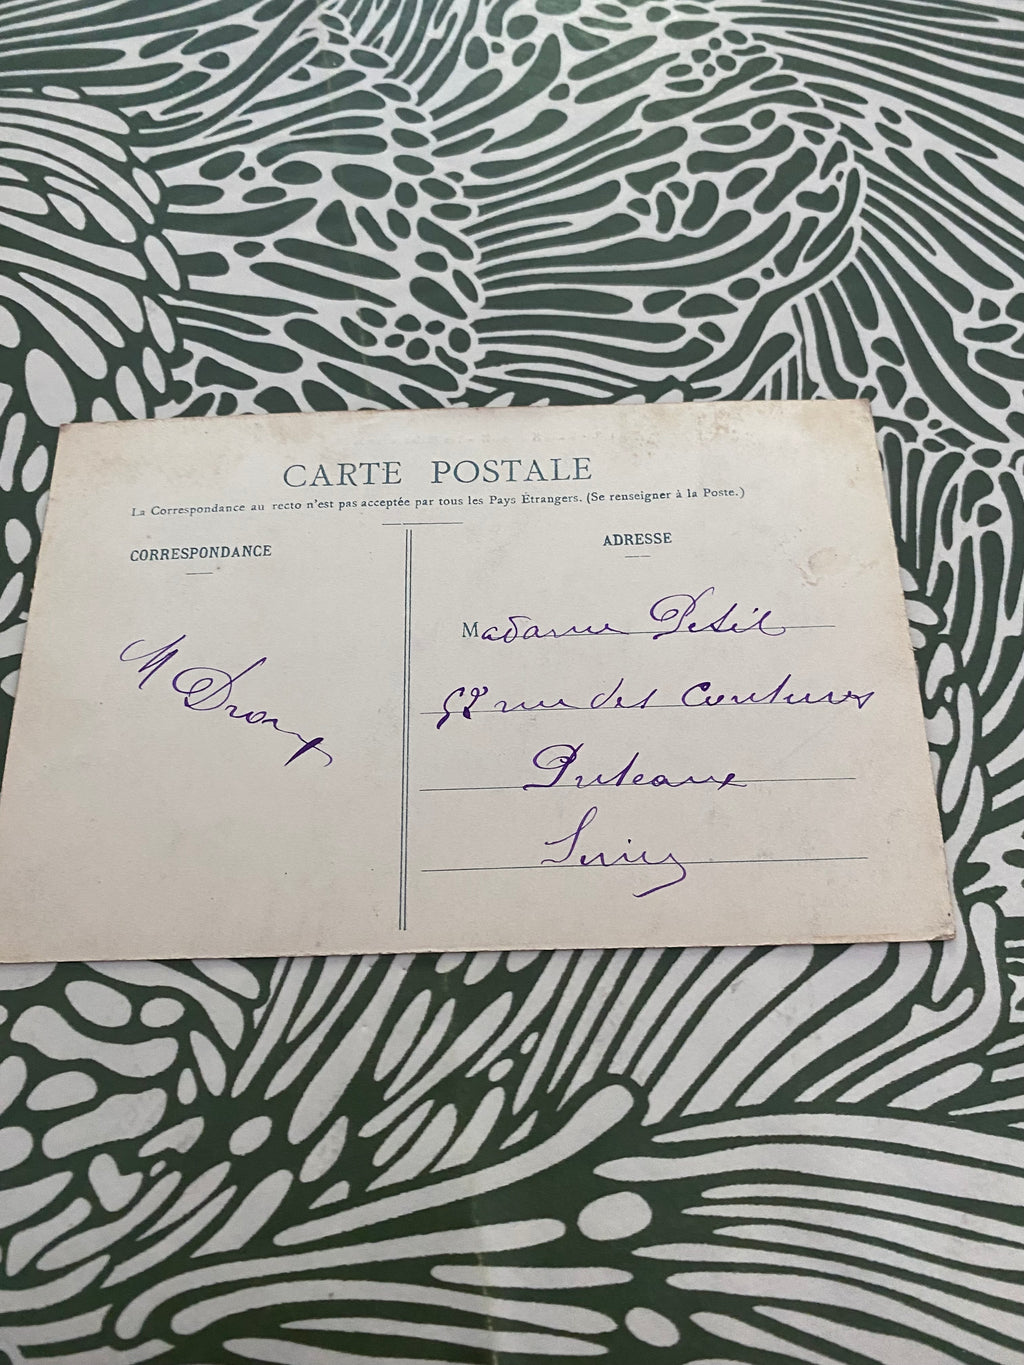 CARTE POSTALE
La Correspondance au recto n'est pas acceptée par tous les Pays Étrangers. (Se renseigner à la Poste.)
CORRESPONDANCE
M
ADRESSE
Madame Petit
rue des Coutures
Puteaux